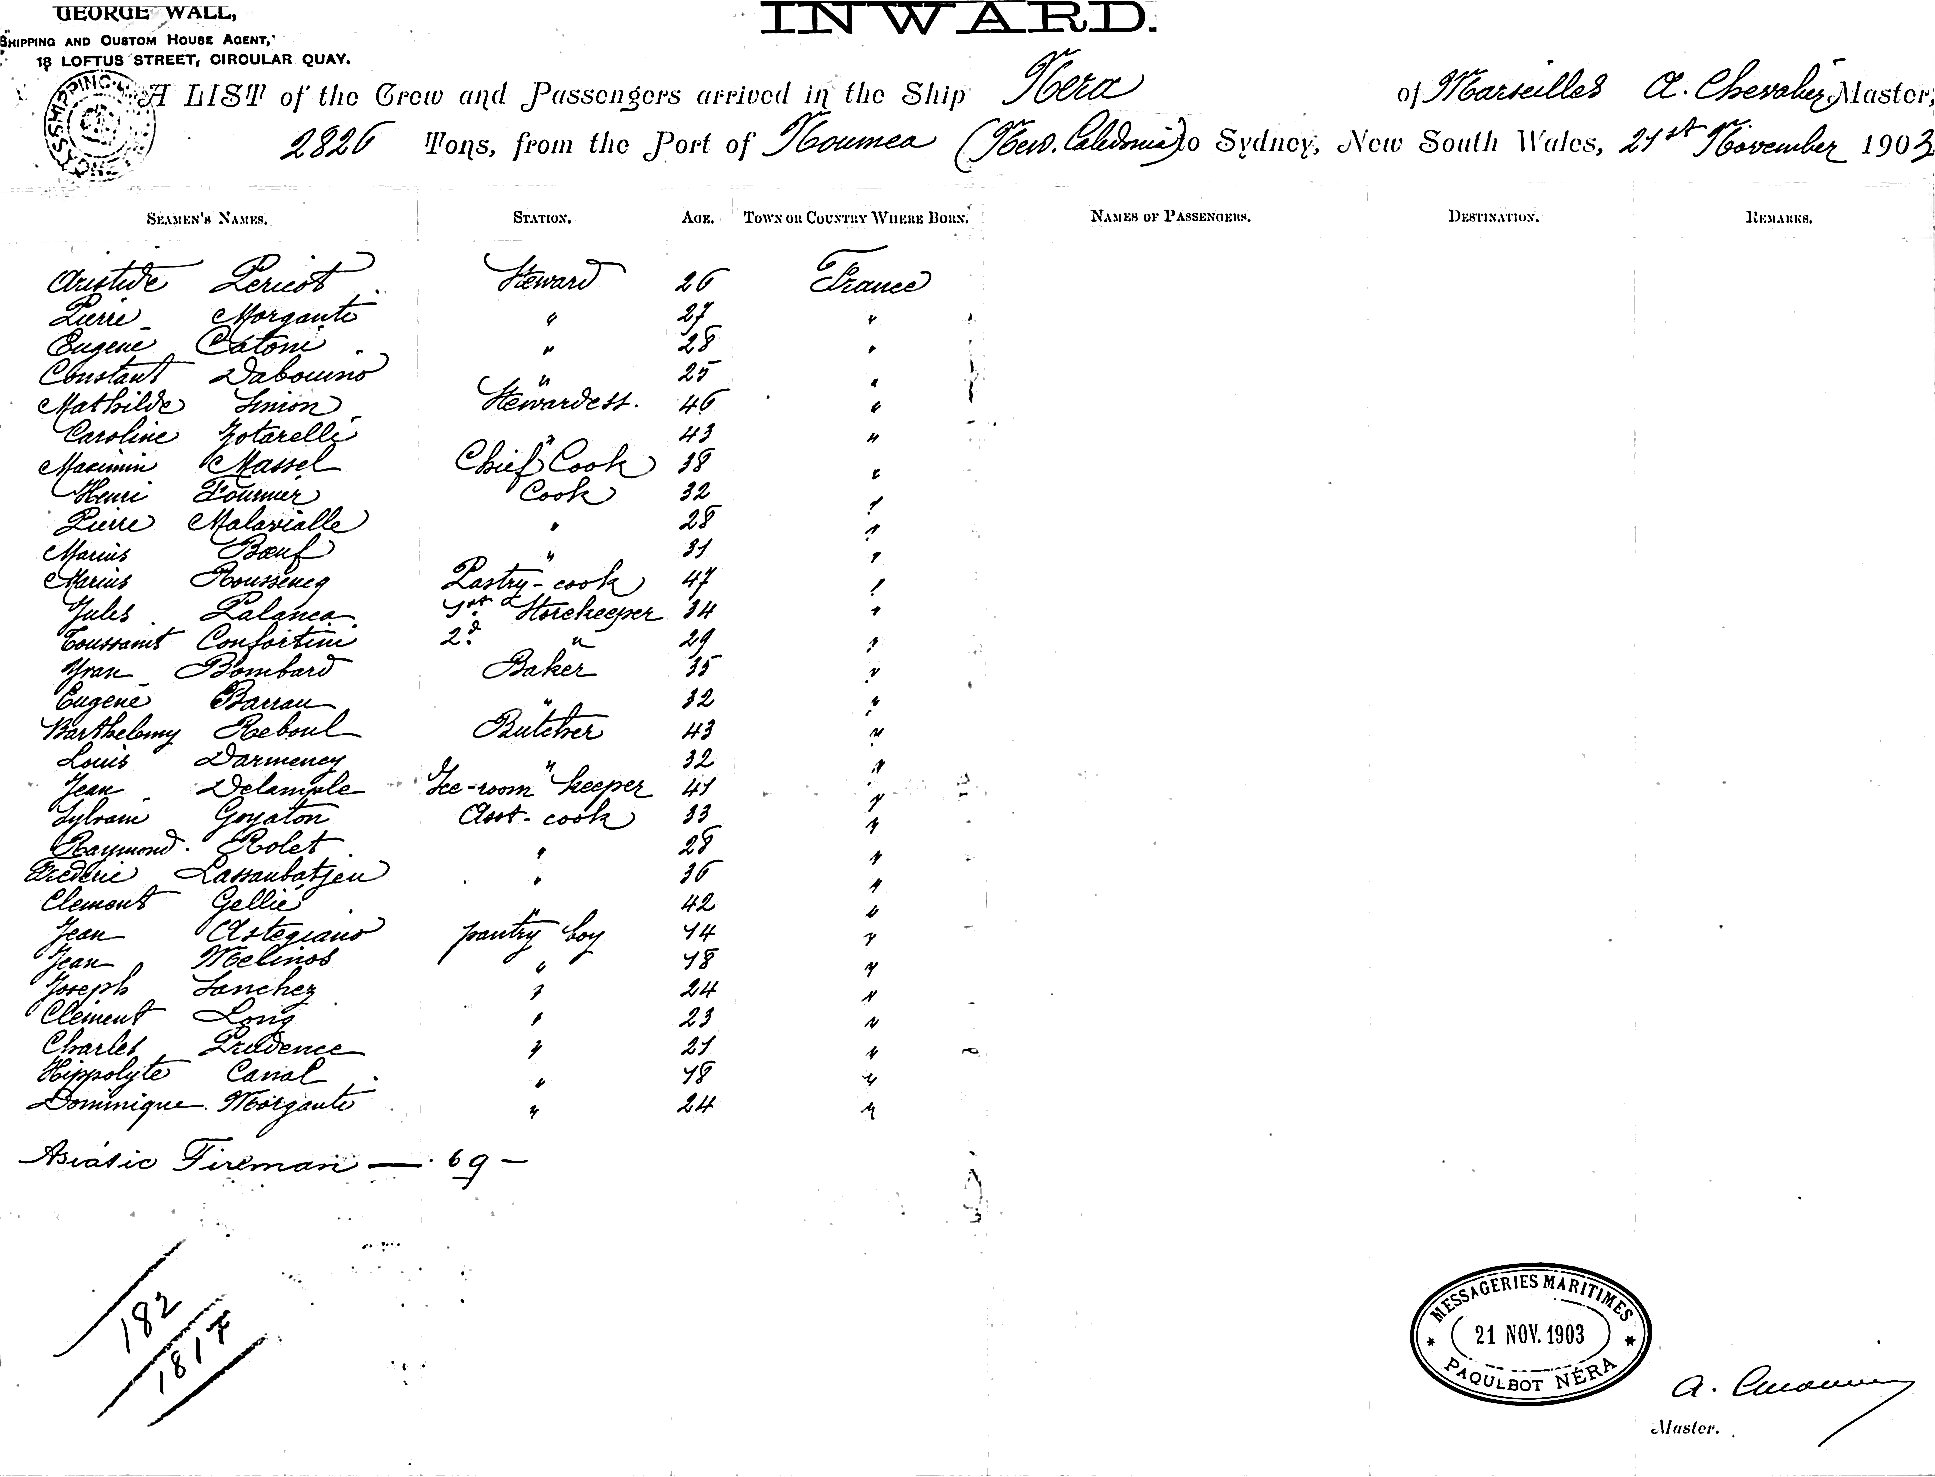 GEORGE WALL,
SHIPPING AND CUSTOM HOUSE AGENT,
18 LOFTUS STREET, CIRCULAR QUAY.
INWARD.
A LIST of the Crew and Passengers arrived in the Ship Nera of Marseilles A. Chevalier, Master,
2826 Tons, from the Port of Noumea (New. Caledonia) to Sydney, New South Wales, 21st November 1903
SEAMEN'S NAMES. STATION. AGE. TOWN OR COUNTRY WHERE BORN. NAMES OF PASSENGERS. DESTINATION. REMARKS.
Aristide Pericot Steward 26 France
Pierre Morganti " 27 "
Eugene Catoni " 28 "
Constant Dabouino " 25 "
Mathilde Simon Stewardess. 46 "
Caroline Zotarelli " 43 "
Maximin Massel Chief Cook 38 "
Henri Fournier Cook 32 "
Pierre Malavialle " 28 "
Marius Bœuf " 31 "
Marius Roussencq Pastry-cook 47 "
Jules Palanca 1st Storekeeper 34 "
Toussaint Confortini 2d " 29 "
Yvan Bombard Baker 35 "
Eugene Barrau " 32 "
Barthelemy Reboul Butcher 43 "
Louis Darmency " 32 "
Jean Delample Ice-room keeper 41 "
Sylvain Goyaton Asst-cook 33 "
Raymond Rolet " 28 "
Frederic Lassaubatjeu " 36 "
Clement Gellie " 42 "
Jean Astegiano pantry boy 14 "
Jean Melinos " 18 "
Joseph Sanchez " 24 "
Clement Long " 23 "
Charles Prudence " 21 "
Hippolyte Canal " 18 "
Dominique Morganti " 24 "
Asiatic Fireman — 69 —
182
1817
MESSAGERIES MARITIMES
21 NOV. 1903
PAQUEBOT NÉRA
A.
Master.